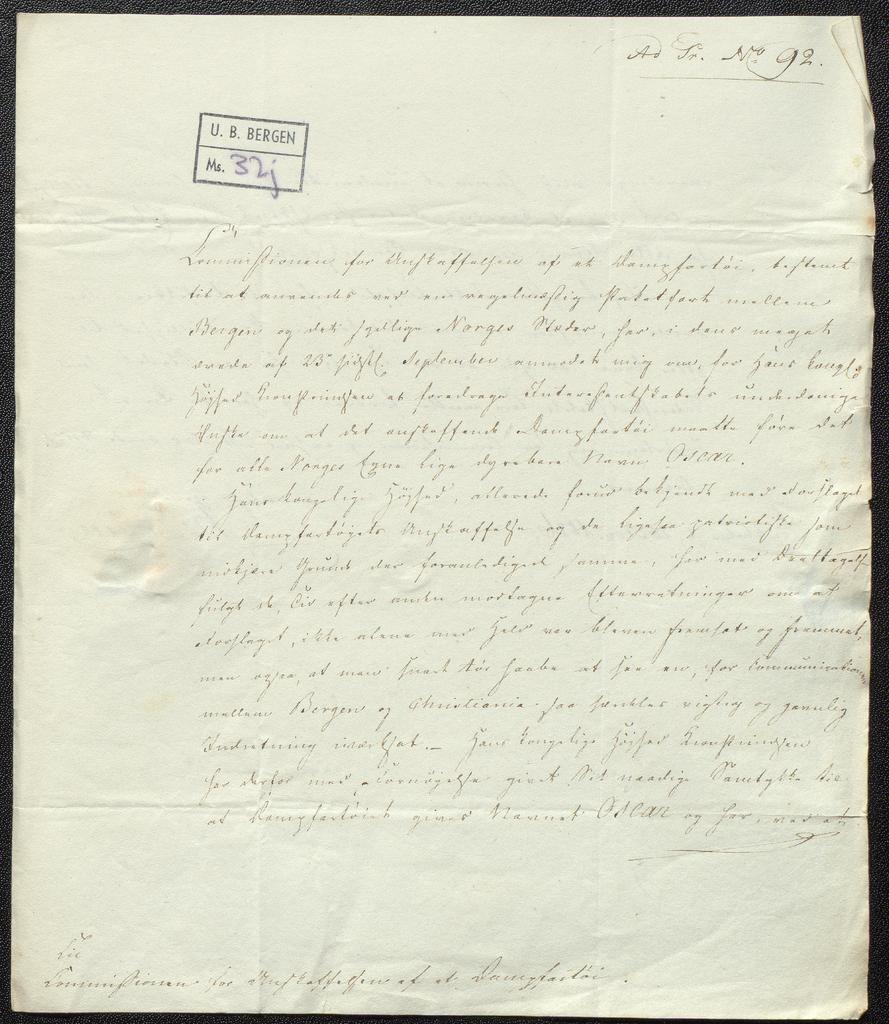 Ad Pr. No 92.
U. B. BERGEN
Ms. 32j
Commissionen for Anskaffelsen af et Dampfartøi, bestemt
til at anvendes ved en regelmæssig Paketfart mellem
Bergen og det sydlige Norges Stæder, har, i dens meget
ærede af 23de sidstl. September anmodet mig om, for Hans Kongl.
Høyhed Kronprindsen at foredrage Interessentskabets underdanige
Ønske om at det anskaffende Dampfartøi maatte føre det
for alle Norges Egne lige dyrebare Navn Oscar.
Hans Kongelige Høyhed, allerede forud bekjendt med Forslaget
til Dampfartøyets Anskaffelse og de ligesaa patriotiske som
Grunde der foranledigede samme, har med Deeltagelse
fulgt de, Tid efter anden modtagne Efterretninger om at
Forslaget, ikke alene med Held var bleven fremsat og fremmet,
men ogsaa, at man snart tør haabe at see en, for Communicationen
mellem Bergen og Christiania saa særdeles vigtig og gavnlig
Indretning iværksat. – Hans Kongelige Høyhed Kronprindsen
har derfor med Fornøyelse givet Sit naadige Samtykke til
at Dampfartøiet gives Navnet Oscar og har, ved at
Til
Commissionen for Anskaffelsen af et Dampfartøi.